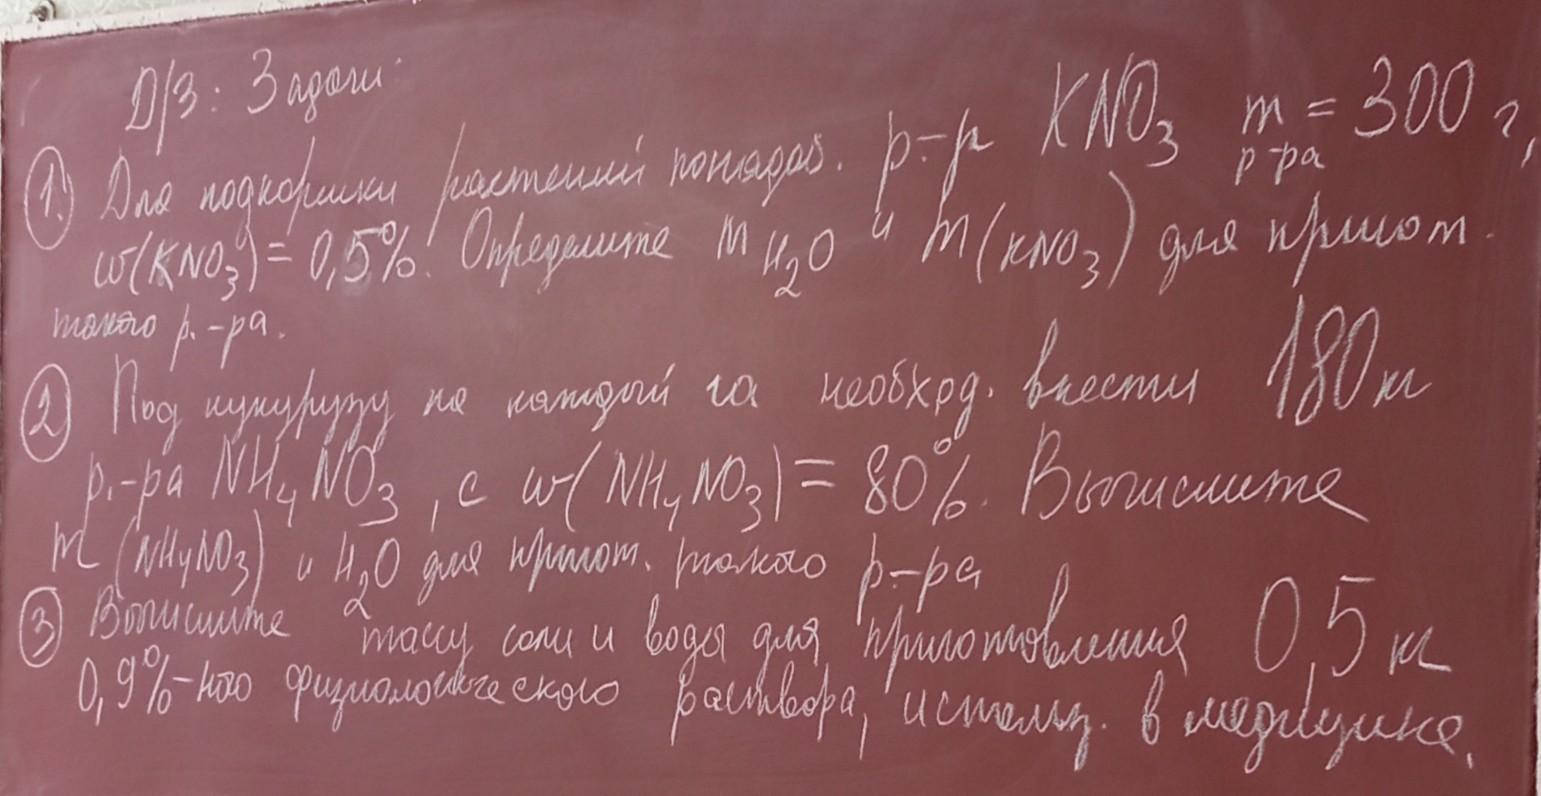 Д/З: Задачи:
1. Для подкормки растений понадоб. р-р KNO₃ m р-ра = 300 г,
w(KNO₃) = 0,5%. Определите m H₂O и m(KNO₃) для пригот.
такого р.-ра.
2 Под кукурузу на каждый га необход. внести 180 кг
р.-ра NH₄NO₃, с w(NH₄NO₃) = 80%. Вычислите
m (NH₄NO₃) и H₂O для пригот. такого р-ра
3 Вычислите массу соли и воды для приготовления 0,5 кг
0,9%-ного физиологического раствора, использ. в медицине.